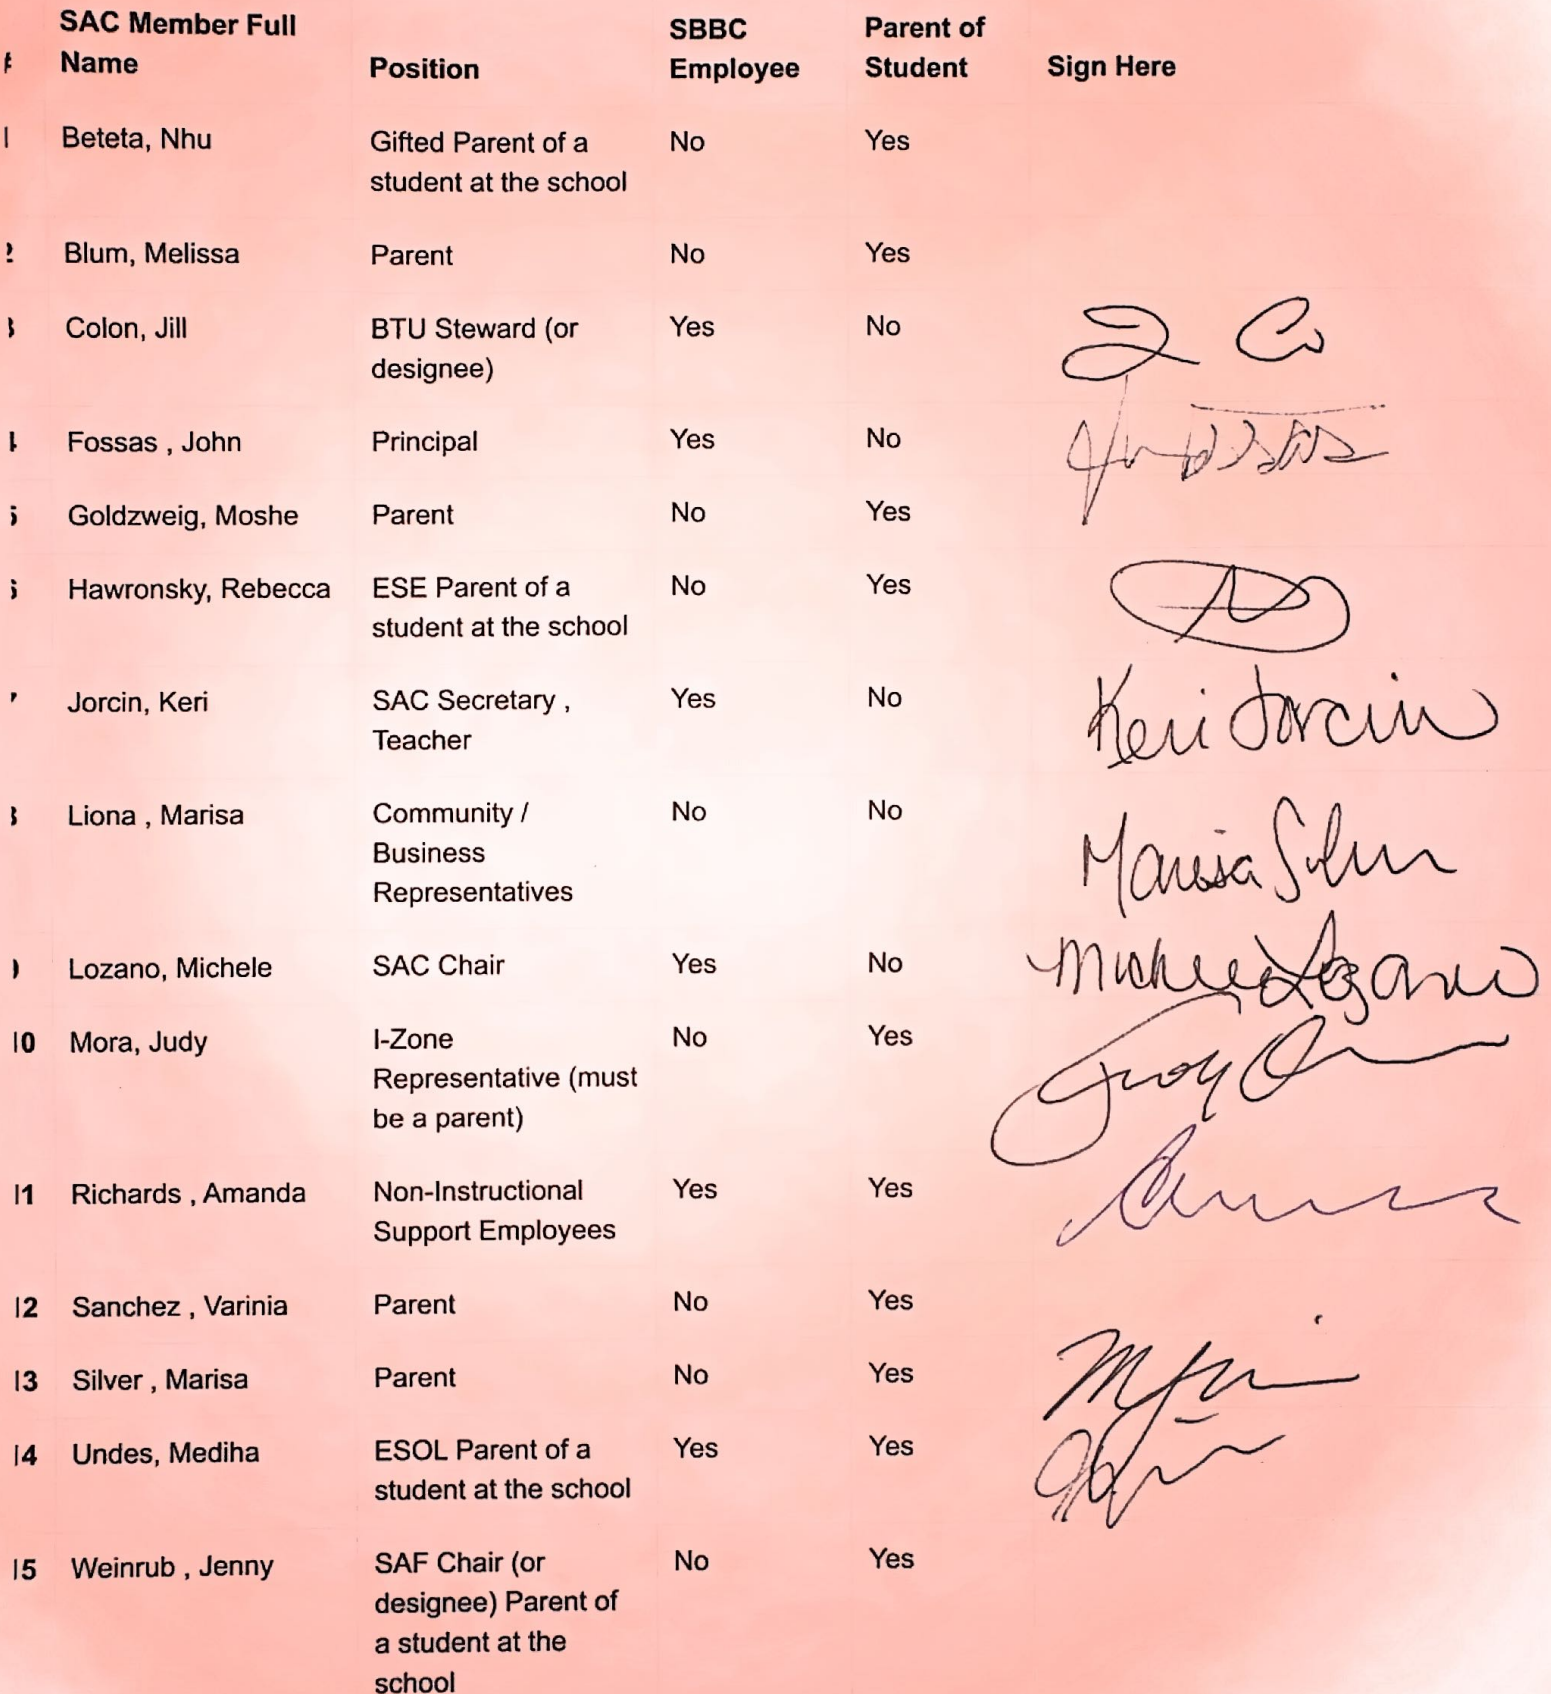 SAC Member Full Name Position SBBC Employee Parent of Student Sign Here
Beteta, Nhu Gifted Parent of a No Yes
student at the school
Blum, Melissa Parent No Yes
Colon, Jill BTU Steward (or Yes No
designee)
Fossas , John Principal Yes No
Goldzweig, Moshe Parent No Yes
Hawronsky, Rebecca ESE Parent of a No Yes
student at the school
Jorcin, Keri SAC Secretary , Yes No Keri Jorcin
Teacher
Liona , Marisa Community / No No Marisa
Business
Representatives
Lozano, Michele SAC Chair Yes No Michele Lozano
10 Mora, Judy I-Zone No Yes Judy
Representative (must
be a parent)
11 Richards , Amanda Non-Instructional Yes Yes
Support Employees
12 Sanchez , Varinia Parent No Yes
13 Silver , Marisa Parent No Yes
14 Undes, Mediha ESOL Parent of a Yes Yes
student at the school
15 Weinrub , Jenny SAF Chair (or No Yes
designee) Parent of
a student at the
school